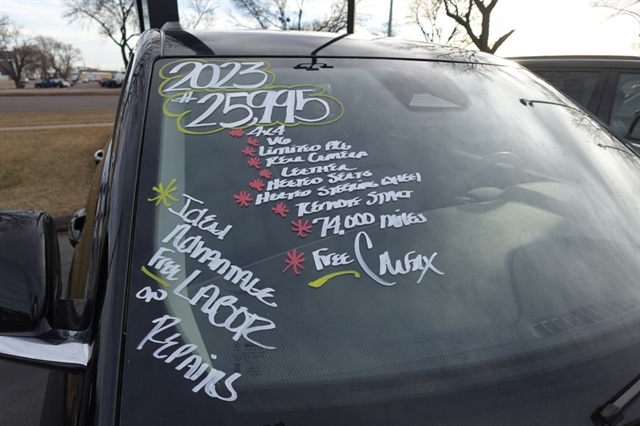 2023
$25,995
4x4
V6
Limited Pkg
Rear Camera
Leather
Heated Seats
Heated Steering Wheel
Remote Start
74,000 miles
Free Carfax
Ideal
Advantage
Free Labor
on
Repairs